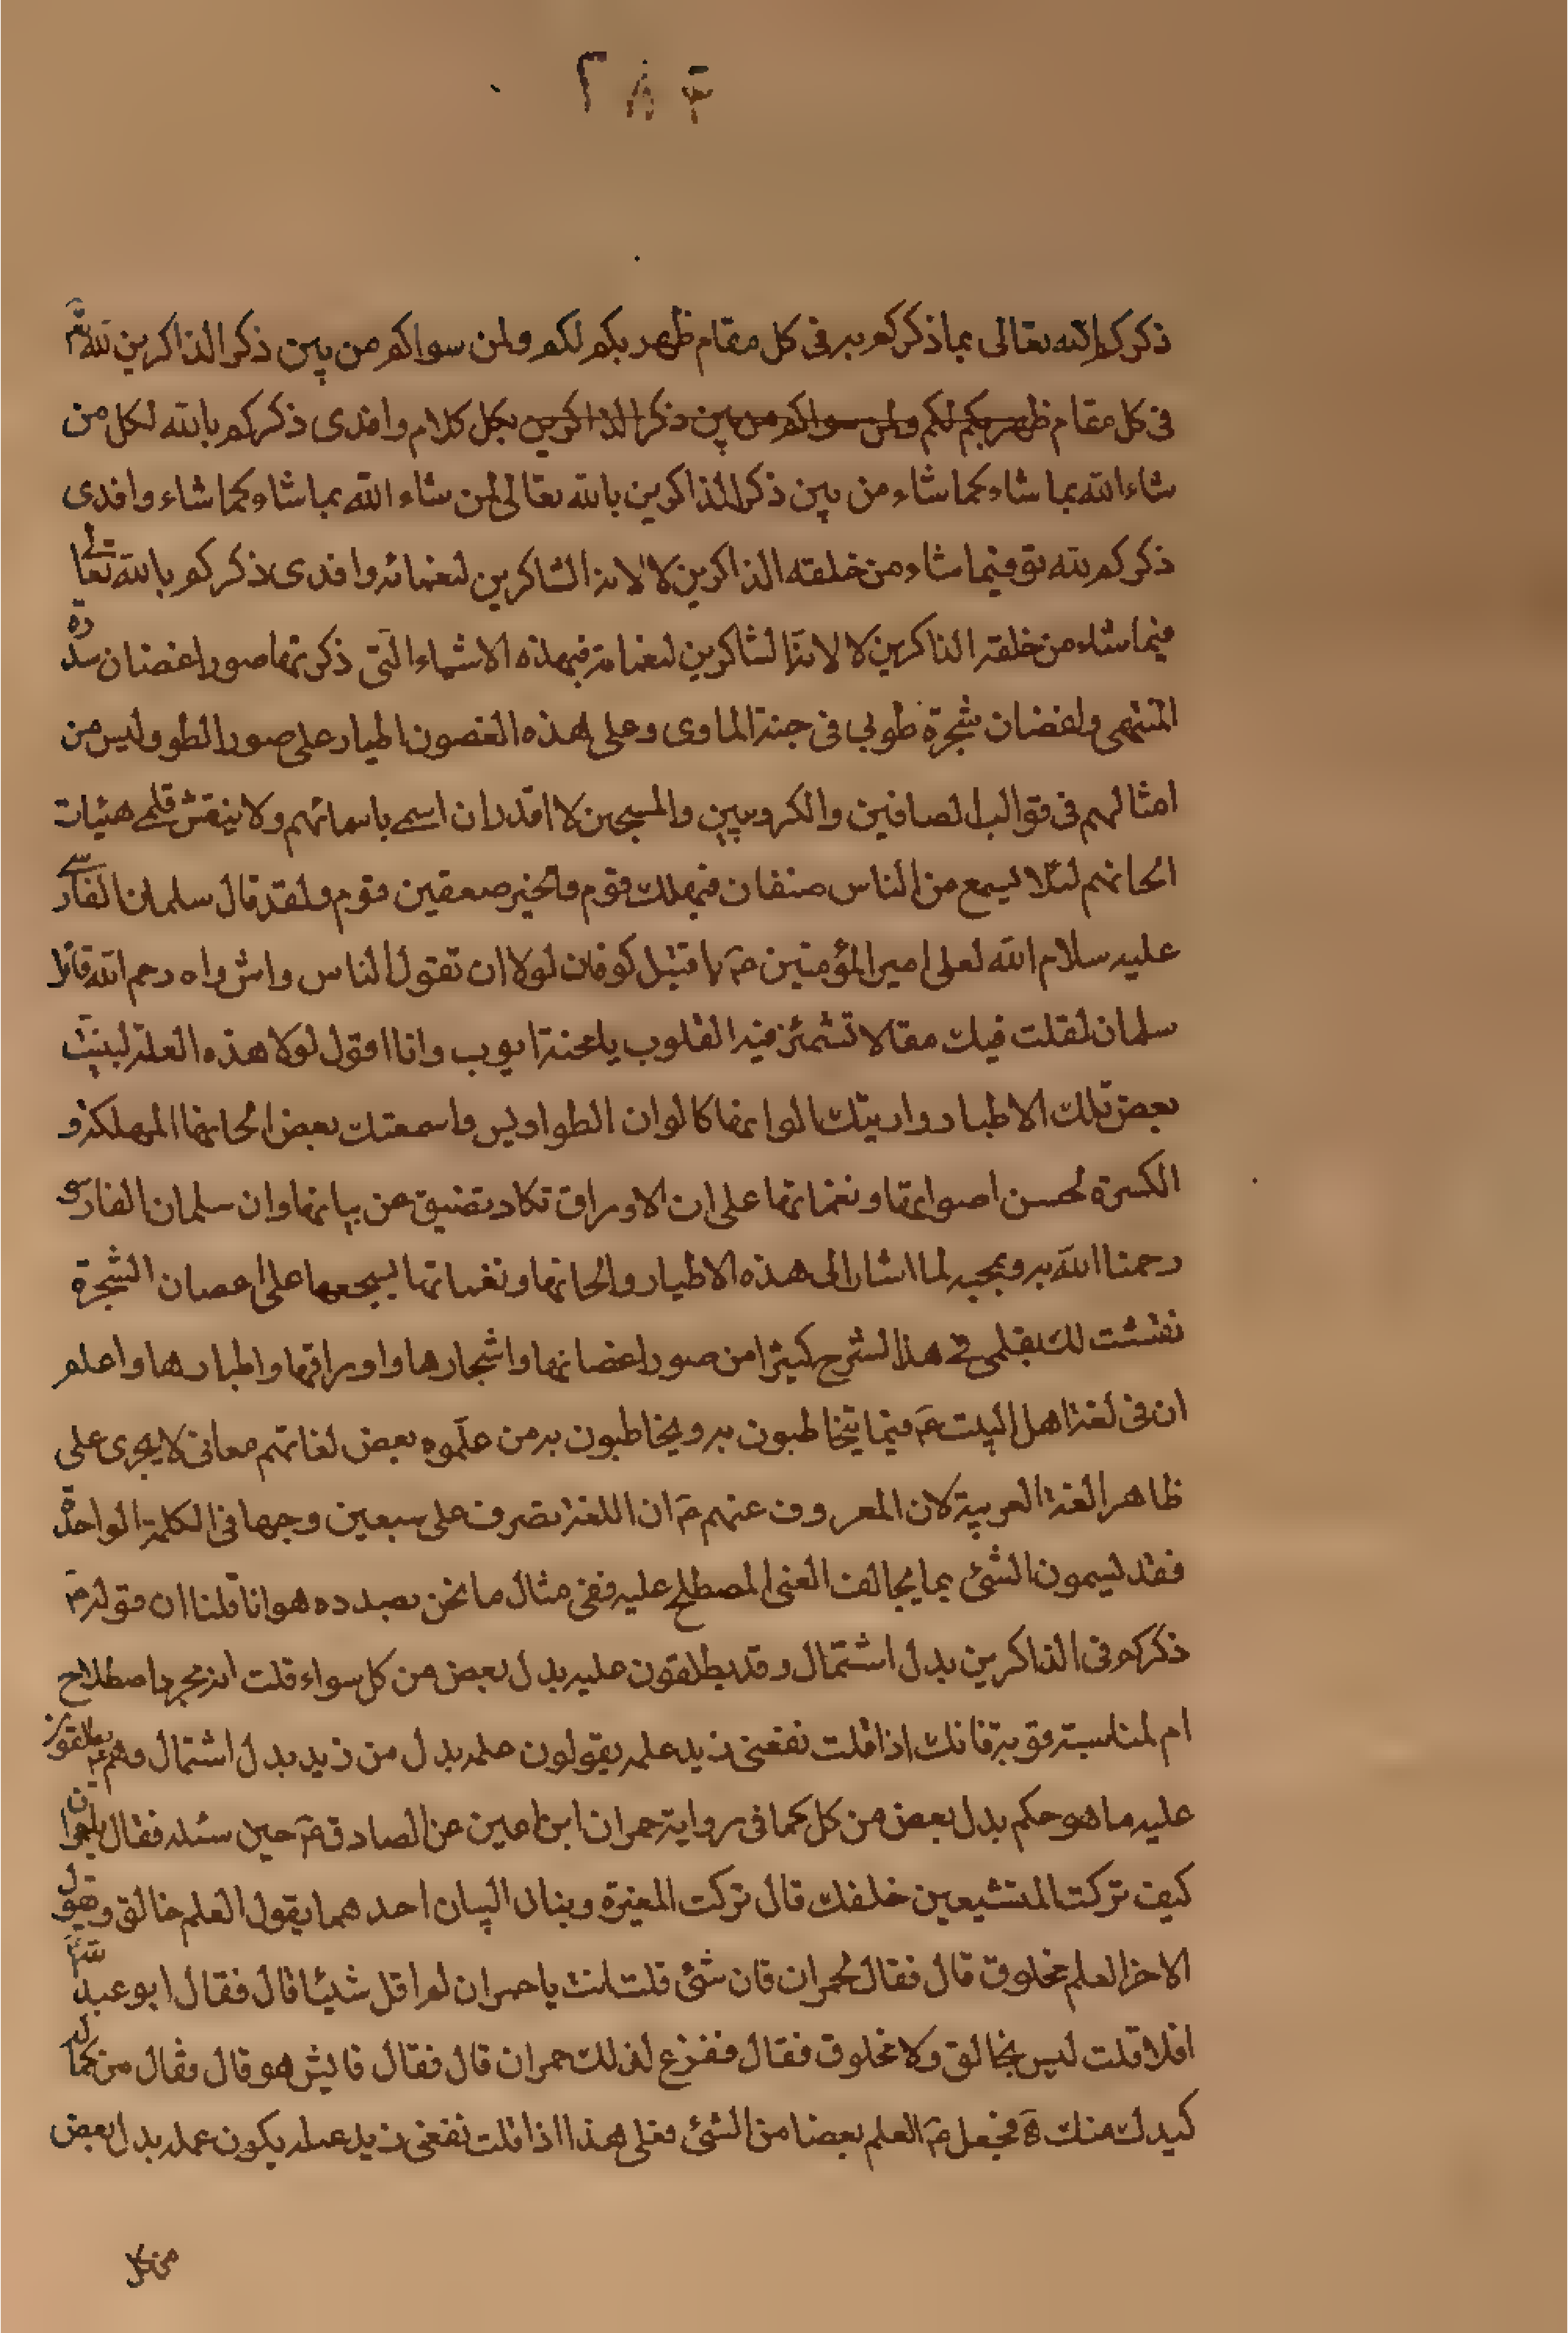 ٢٨٣
ذكركم الله تعالى بما ذكركم به فى كل مقام ظهر بكم لكم ولمن سواكم من بين ذكر الذاكرين لله
فى كل مقام ظهر بكم لكم ولمن سواكم من بين ذكر الذاكرين بكل كلام وافدى ذكركم بالله لكل من
شاء الله بما شاء كما شاء من بين ذكر الذاكرين بالله تعالى لمن شاء الله بما شاء كما شاء وافدى
ذكركم لله تع فيما شاء من خلقه الذاكرين لالائه الشاكرين لنعمائه وافدى ذكركم بالله تعالى
فيما شاء من خلقه الذاكرين لالائه الشاكرين لنعمائه فهذه الاشياء التى ذكرتها صور اغصان سدرة
المنتهى واغصان شجرة طوبى فى جنة الماوى وعلى هذه الغصون اطيار على صور الطو وليس من
امثالهم فى قوالب الصافين والكروبيين والمسبحين لا اقدر ان اسمى باسمائهم ولا ينقش قلمى هيئات
الحانهم لئلا يسمع من الناس صنفان فيهلك قوم صعقين قوم ولقد قال سلمان الفارسى
عليه سلام الله لعلى امير المؤمنين عم يا قتيل كوفان لولا ان تقول الناس واش واه رحم الله قاتل
سلمان لقلت فيك مقالا تشمئز منه القلوب يا محنة ايوب وانا اقول لولا هذه العلة لبينت
بعض تلك الاطيار واريتك الوانها كالوان الطواويس واسمعتك بعض الحانها المهلكة و
لحسن اصواتها ونغماتها على ان الاوراق تكاد تضيق عن بيانها وان سلمان الفارسى
رحمنا الله به وبمحبه لما اشار الى هذه الاطيار والحانها ونغماتها بسجعها على اغصان الشجرة
نقشت لك بقلمى فى هذا الشرح كثيرا من صور اغصانها واشجارها واوراقها واطيارها واعلم
ان فى لغة اهل البيت عم فيما يتخاطبون به ويخاطبون به من علموه بعض لغاتهم معانى لا يجرى على
ظاهر اللغة العربية لان المعروف عنهم عم ان اللغة تصرف على سبعين وجها فى الكلمة الواحدة
فقد يسمون الشئ بما يخالف المعنى المصطلح عليه ففى مثال ما نحن بصدده هو انا قلنا ان قوله عم
ذكركم فى الذاكرين بدل اشتمال وقد يطلقون عليه بدل بعض من كل سواء قلت انه مجرد اصطلاح
ام لمناسبة قوية فانك اذا قلت نفعنى زيد علمه يقولون علمه بدل من زيد بدل اشتمال وهم عم يطلقون
عليه ما هو حكم بدل بعض من كل كما فى رواية حمران ابن اعين عن الصادق عم حين سئله فقال يا حمران
كيف تركت المتشيعين خلفك قال تركت المغيرة وبنان البيان احدهما يقول العلم خالق ويقول
الاخر العلم مخلوق قال فقال لحمران فان شئ قلت انت يا حمران لم اقل شيئا قال فقال ابو عبد الله
افلا قلت ليس بخالق ولا مخلوق فقال ففزع لذلك حمران قال فقال فايش هو قال فقال من كماله
كيدك منك ة فجعل عم العلم بعضا من الشئ فعلى هذا اذا قلت نفعنى زيد علمه يكون علمه بدل بعض
من كل